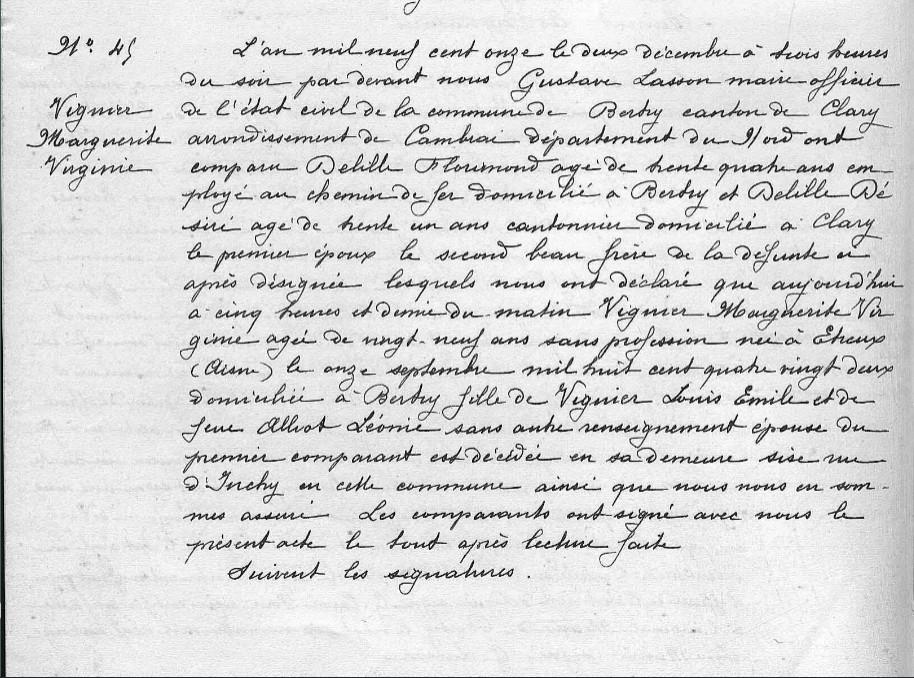 N° 45
Vignier
Marguerite
Virginie
L'an mil neuf cent onze le deux décembre à trois heures
du soir par devant nous Gustave Lasson maire officier
de l'état civil de la commune de Bertry canton de Clary
arrondissement de Cambrai département du Nord ont
comparu Delille Florimond agé de trente quatre ans em-
ployé au chemin de fer domicilié à Bertry et Delille Dé
siré agé de trente un ans cantonnier domicilié à Clary
le premier époux le second beau frère de la défunte ci
après désignée lesquels nous ont déclaré que aujourd'hui
à cinq heures et demie du matin Vignier Marguerite Vir
ginie agée de vingt-neuf ans sans profession née à Etreux
(Aisne) le onze septembre mil huit cent quatre vingt deux
domiciliée à Bertry fille de Vignier Louis Emile et de
feue Léonie sans autre renseignement épouse du
premier comparant est décédée en sa demeure sise rue
d'Inchy en cette commune ainsi que nous nous en som-
mes assuré Les comparants ont signé avec nous le
présent acte le tout après lecture faite
Suivent les signatures.